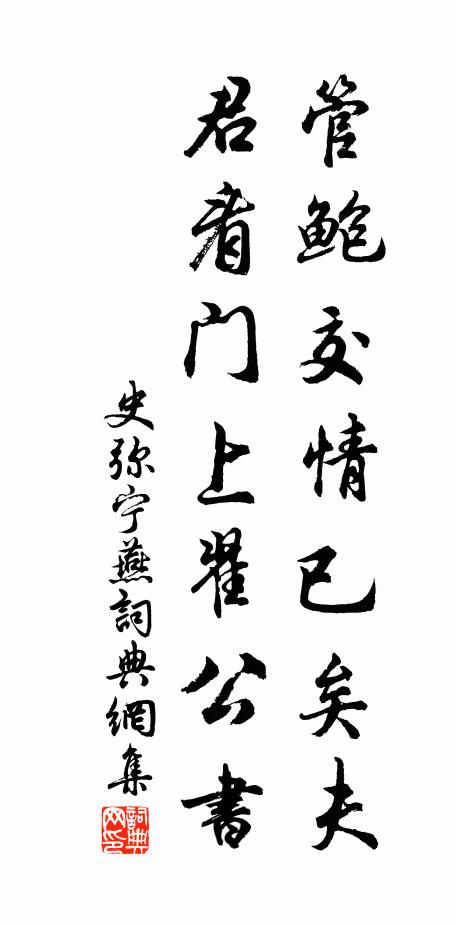 管鲍交情已矣夫
君看门上翟公書
史弥宁燕詞典網集
詞典网印